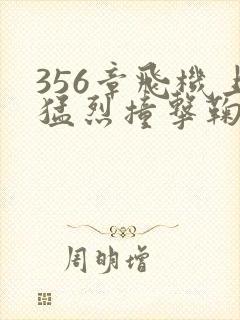 356章飛機上
猛烈撞擊鞠
周明增